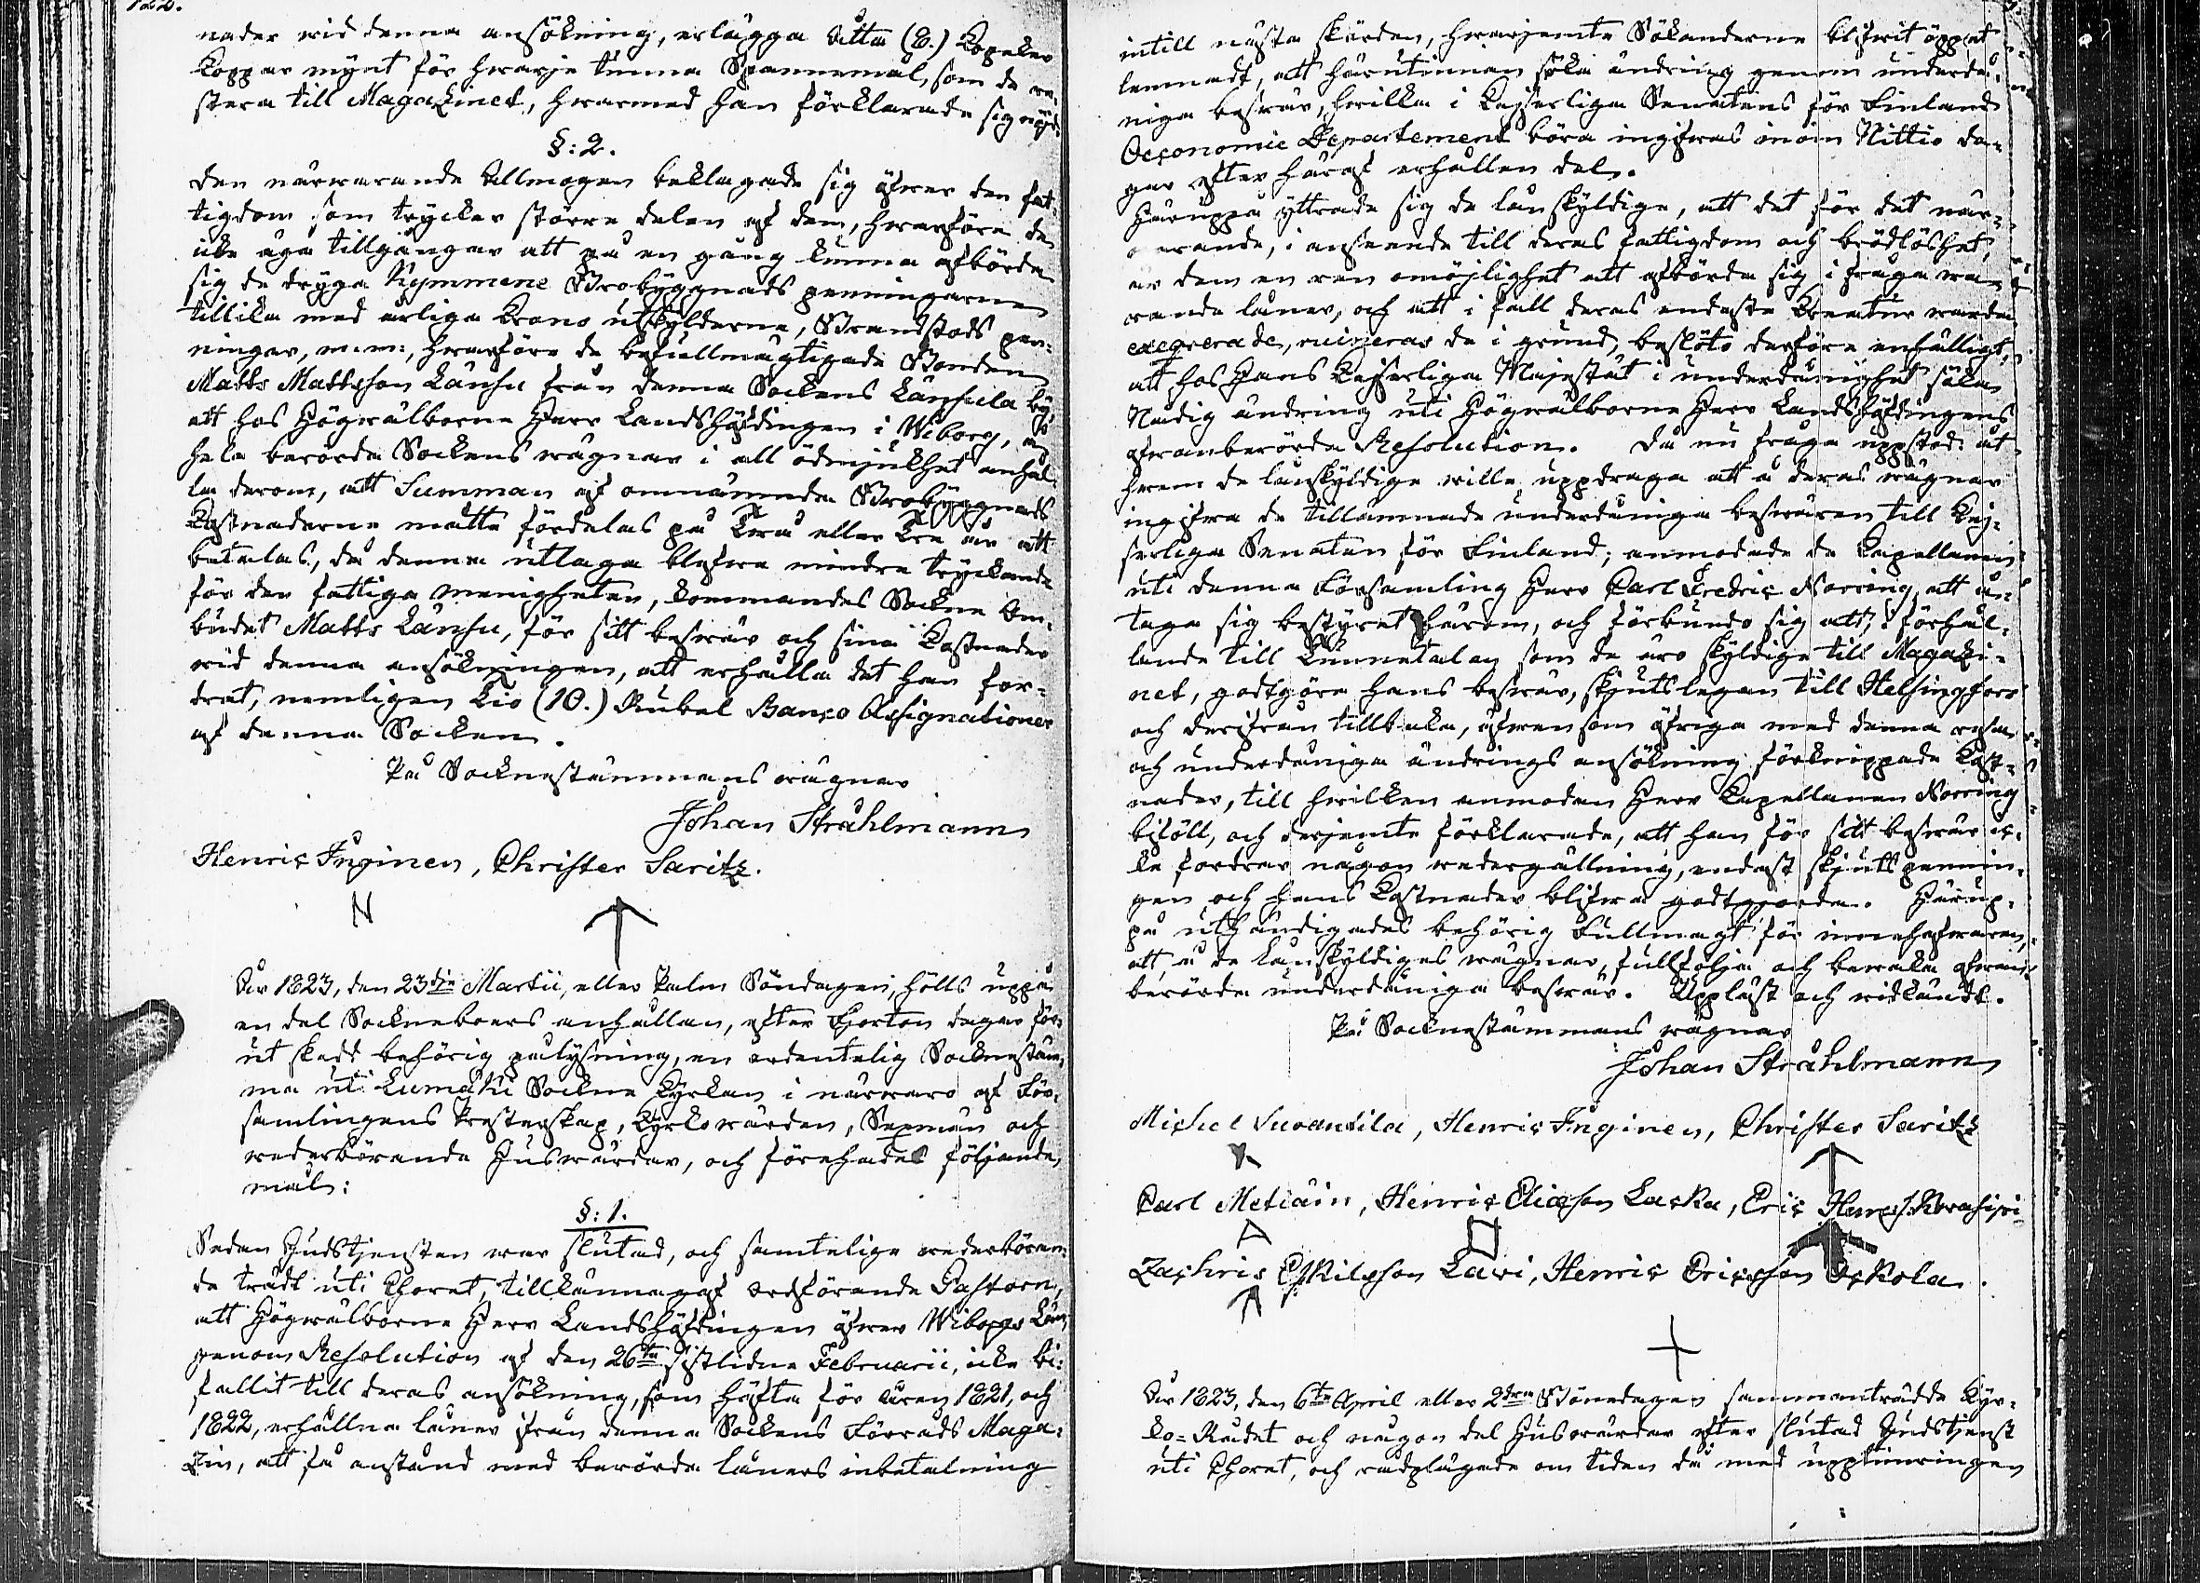 122.
nader wid denna ansökning, erlägga Åtta (8.) Kopeker
Koppar mynt för hwarje tunna Spannemål, som de re-
stera till Magazinet, hwarmed han förklarade sig nöjd.
§: 2.
Den närwarande Allmogen beklagade sig öfwer den fat-
tigdom som trycker större delen af dem, hwarföre de
icke äga tillgångar att på en gång kunna afbörda
sig de dryga Kymmene Brobyggnads penningarne
tillika med årliga Krono utskylderne, Brandstods pen-
ningar, m.m:, hwarföre de befullmägtigade Bonden
Matts Mattsson Länsu från denna Sockens Länsula by,
att hos Högwälborne Herr Landshöfdingen i Wiborg, å
hela berörde Sockens wägnar i all ödmjukhet anhål-
la derom, att Summan af omnämnda Brobyggnads
Kostnaderne måtte fördelas på Twå eller Tre år att
betalas, då denna utlaga blefwe mindre tryckande
för den fattiga menigheten, kommandes Sockne Om-
budet Matts Länsu, för sitt beswär och sina Kostnader
wid denna ansökningen, att erhålla det han for-
drat, nemligen Tio (10.) Rubel Banco Assignationer
af denna Socken.
På Socknestämmans wägnar
Johan Stråhlmann
Henric Inginen, Christer Saritz.
År 1823, den 23dje Martii, eller Palm Söndagen, hölls uppå
en del Sockneboers anhållan, efter Fjorton dagar för-
ut skedd behörig pålysning, en ordentelig Socknestäm-
ma uti Lumäki Sockne Kyrkan i närwaro af För-
samlingens Presterskap, Kyrkowärden, Sexmän och
wederbörande Husbwärdar, och förehades följande
mål:
§: 1.
Sedan Gudstjensten war slutad, och samtelige wederböran-
de trädt uti Choret, tillkännagaf ordförande Pastorn,
att Högwälborne Herr Landshöfdingen öfwer Wiborgs Län
genom Resolution af den 26te sistlidne Februarii, icke bi-
fallit till deras ansökning, som häfta för åren 1821, och
1822, erhållna låner från denna Sockens Förråds Maga-
zin, att få anstånd med berörde låners inbetalning
intill nästa skörden, hwarjemte Sökanderne blifwit öppet
lemnadt, att härutinnan söka ändring genom underdå-
niga beswär, hwilka i Kejserliga Senatens för Finland
Oeconomie Departement böra ingifwas inom Nittio da-
gar efter häraf erhållen del.
Häruppå yttrade sig de lånskyldige, att det för det när-
warande, i anseende till deras fattigdom och brödlöshet,
är dem en ren omöjlighet att afbörda sig i fråga wa-
rande låner, och att i fall deras endaste Kreatur warda
exequerade, ruineras de i grund, beslöto derföre enhälligt,
att hos Hans Kejserliga Majestät i underdånighet söka
Nådig ändring uti Högwälborne Herr Landshöfdingens
ofwanberörde Resolution. Då nu fråga uppstod: åt
hwem de lånskyldige wille uppdraga att å deras wägnar
ingifwa de tillämnade underdåniga beswären till Kej-
serliga Senaten för Finland; anmodade de Capellanen
uti denna Församling Herr Carl Fredric Norring, att å-
taga sig bestyret härom, och förbundo sig att, i förhål-
lande till Tunnetalen som de äro skyldige till Magazi-
net, godtgöra hans beswär, skjutslegan till Helsingfors
och derifrån tillbaka, äfwensom öfriga med denna resa
och underdåniga ändrings ansökning förknippade Kost-
nader, till hwilken anmodan Herr Capellanen Norring
biföll, och derjemte förklarade, att han för sitt beswär ic-
ke fordrar någon wedergällning, endast skjutspennin-
gen och hans Kostnader blifwa godtgjorda. Härup-
på uthändigades behörig Fullmagt för innehafwaren,
att, å de Lånskyldiges wägnar, fullfölja och bewaka ofwan-
berörde underdåniga beswär. Uppläst och widkändt.
På Socknestämmans wägnar
Johan Stråhlmann
Michel Suoantila, Henric Inginen, Christer Saritz
Carl Metiäin, Henric Eliasson Laska, Eric Henrs.
Zachris Eskilsson Lawi, Henric Ericsson Oskola.
År 1823, den 6te April eller 2dra Bönedagen sammanträdde Kyr-
ko-Rådet och någon del Huswärdar efter slutad Gudstjenst
uti Choret, och rådplägade om tiden då med upptimringen